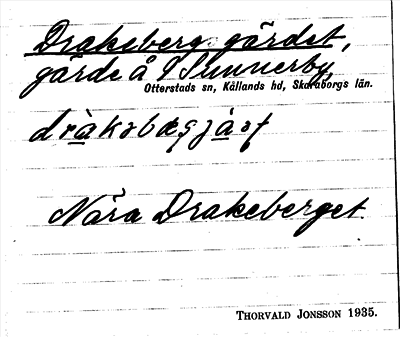 Drakeberg gärdet,
gärde å S Sunnerby,
Otterstads sn, Kållands hd, Skaraborgs län.
Nära Drakeberget.
THORVALD JONSSON 1935.